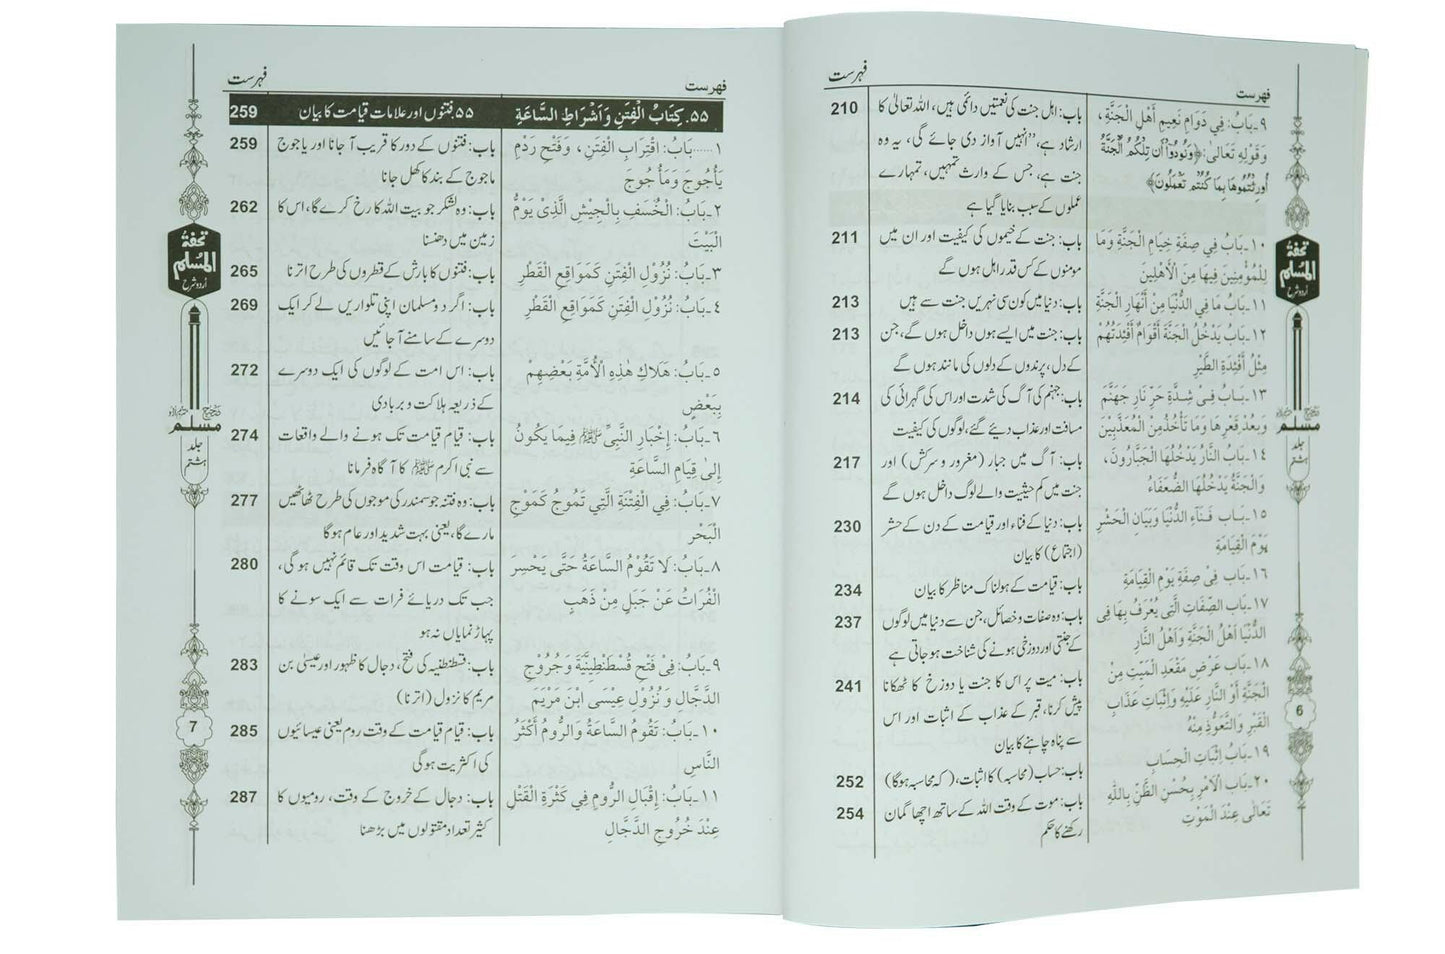 فہرست
فہرست
٩۔بَابُ: فِي دَوَامِ نَعِيمِ أَهْلِ الْجَنَّةِ،
وَقَوْلِهِ تَعَالىٰ: ﴿وَنُودُوٓا۟ أَن تِلْكُمُ ٱلْجَنَّةُ
أُورِثْتُمُوهَا بِمَا كُنتُمْ تَعْمَلُونَ﴾
باب: اہل جنت کی نعمتیں دائمی ہیں، اللہ تعالیٰ کا
ارشاد ہے، ’’انہیں آواز دی جائے گی، یہ وہ
جنت ہے، جس کے وارث تمہیں، تمہارے
عملوں کے سبب بنایا گیا ہے
210
١٠۔بَابُ فِي صِفَةِ خِيَامِ الْجَنَّةِ وَمَا
لِلْمُؤْمِنِينَ فِيهَا مِنَ الْأَهْلِينَ
باب: جنت کے خیموں کی کیفیت اور ان میں
مومنوں کے کس قدر اہل ہوں گے
211
١١۔بَابُ مَا فِي الدُّنْيَا مِنْ أَنْهَارِ الْجَنَّةِ
باب: دنیا میں کون سی نہریں جنت سے ہیں
213
١٢۔بَابُ يَدْخُلُ الْجَنَّةَ أَقْوَامٌ أَفْئِدَتُهُمْ
مِثْلُ أَفْئِدَةِ الطَّيْرِ
باب: جنت میں ایسے ہوں داخل ہوں گے، جن
کے دل، پرندوں کے دلوں کی مانند ہوں گے
213
١٣۔بَابُ فِيْ شِدَّةِ حَرِّ نَارِ جَهَنَّمَ
وَبُعْدِ قَعْرِهَا وَمَا تَأْخُذُ مِنَ الْمُعَذَّبِينَ
باب: جہنم کی آگ کی شدت اور اس کی گہرائی کی
مسافت اور عذاب دیئے گئے، لوگوں کی کیفیت
214
١٤۔بَابُ النَّارُ يَدْخُلُهَا الْجَبَّارُونَ،
وَالْجَنَّةُ يَدْخُلُهَا الضُّعَفَاءُ
باب: آگ میں جبار (مغرور و سرکش) اور
جنت میں کم حیثیت والے لوگ داخل ہوں گے
217
١٥۔بَاب فَنَاءِ الدُّنْيَا وَبَيَانِ الْحَشْرِ
يَوْمَ الْقِيَامَةِ
باب: دنیا کے فناء اور قیامت کے دن کے حشر
(اجتماع) کا بیان
230
١٦۔بَاب فِيْ صِفَةِ يَوْمِ الْقِيَامَةِ
باب: قیامت کے ہولناک مناظر کا بیان
234
١٧۔بَاب الصِّفَاتِ الَّتِي يُعْرَفُ بِهَا فِي
الدُّنْيَا أَهْلُ الْجَنَّةِ وَأَهْلُ النَّارِ
باب: وہ صفات و خصائل، جن سے دنیا میں لوگوں
کے جنتی اور دوزخی ہونے کی شناخت ہو جاتی ہے
237
١٨۔بَاب عَرْضِ مَقْعَدِ الْمَيِّتِ مِنَ
الْجَنَّةِ أَوِ النَّارِ عَلَيْهِ وَإِثْبَاتِ عَذَابِ
الْقَبْرِ وَالتَّعَوُّذِ مِنْهُ
باب: میت پر اس کا جنت یا دوزخ کا ٹھکانا
پیش کرنا، قبر کے عذاب کے اثبات اور اس
سے پناہ چاہنے کا بیان
241
١٩۔بَابُ إِثْبَاتِ الْحِسَابِ
باب: حساب (محاسبہ) کا اثبات، (کہ محاسبہ ہوگا)
252
٢٠۔بَابُ الْأَمْرِ بِحُسْنِ الظَّنِّ بِاللّٰهِ
تَعَالٰى عِنْدَ الْمَوْتِ
باب: موت کے وقت اللہ کے ساتھ اچھا گمان
رکھنے کا حکم
254
تحفۃ
المسلم
اردو شرح
صحیح
مسلم
جلد
ہشتم
6
فہرست
فہرست
٥٥. كِتَابُ الْفِتَنِ وَأَشْرَاطِ السَّاعَةِ
۵۵. فتنوں اور علامات قیامت کا بیان
259
١......بَابُ: اقْتِرَابِ الْفِتَنِ، وَفَتْحِ رَدْمِ
يَأْجُوجَ وَمَأْجُوجَ
باب: فتنوں کے دور کا قریب آ جانا اور یاجوج
ماجوج کے بند کا کھل جانا
259
٢۔بَابُ: الْخَسَفِ بِالْجِيْشِ الَّذِيْ يَوُمُّ
الْبَيْتَ
باب: وہ لشکر جو بیت اللہ کا رخ کرے گا، اس کا
زمین میں دھنسنا
262
٣۔بَابُ: نُزُوْلِ الْفِتَنِ كَمَوَاقِعِ الْقَطْرِ
باب: فتنوں کا بارش کے قطروں کی طرح اترنا
265
٤۔بَابُ: نُزُوْلِ الْفِتَنِ كَمَوَاقِعِ الْقَطْرِ
باب: اگر دو مسلمان اپنی تلواریں لے کر ایک
دوسرے کے سامنے آ جائیں
269
٥۔بَابُ: هَلَاكِ هٰذِهِ الْأُمَّةِ بَعْضِهِمْ
بِبَعْضٍ
باب: اس امت کے لوگوں کی ایک دوسرے
کے ذریعہ ہلاکت و بربادی
272
٦۔بَابُ: إِخْبَارِ النَّبِيِّ ﷺ فِيمَا يَكُونُ
إِلىٰ قِيَامِ السَّاعَةِ
باب: قیام قیامت تک ہونے والے واقعات
سے نبی اکرم ﷺ کا آگاہ فرمانا
274
٧۔بَابُ: فِي الْفِتْنَةِ الَّتِي تَمُوجُ كَمَوْجِ
الْبَحْرِ
باب: وہ فتنہ جو سمندر کی موجوں کی طرح ٹھاٹھیں
مارے گا، یعنی بہت شدید اور عام ہوگا
277
٨۔بَابُ: لَا تَقُوْمُ السَّاعَةُ حَتَّى يَحْسِرَ
الْفُرَاتُ عَنْ جَبَلٍ مِنْ ذَهَبٍ
باب: قیامت اس وقت تک قائم نہیں ہو گی،
جب تک دریائے فرات سے ایک سونے کا
پہاڑ نمایاں نہ ہو
280
٩۔بَابُ: فِيْ فَتْحِ قُسْطَنْطِيْنِيَّةَ وَخُرُوْجِ
الدَّجَّالِ وَ نُزُوْلِ عِيْسَى ابْنَ مَرْيَمَ
باب: قسطنطنیہ کی فتح، دجال کا ظہور اور عیسیٰ بن
مریم کا نزول (اترنا)
283
١٠۔بَابُ: تَقُوْمُ السَّاعَةُ وَالرُّومُ أَكْثَرُ
النَّاسِ
باب: قیام قیامت کے وقت روم یعنی عیسائیوں
کی اکثریت ہوگی
285
١١۔بَابُ: إِقْبَالِ الرُّومِ فِي كَثْرَةِ الْقَتْلِ
عِنْدَ خُرُوجِ الدَّجَّالِ
باب: دجال کے خروج کے وقت، رومیوں کا
کثیر تعداد مقتولوں میں بڑھنا
287
تحفۃ
المسلم
اردو شرح
صحیح
مسلم
جلد
ہشتم
7